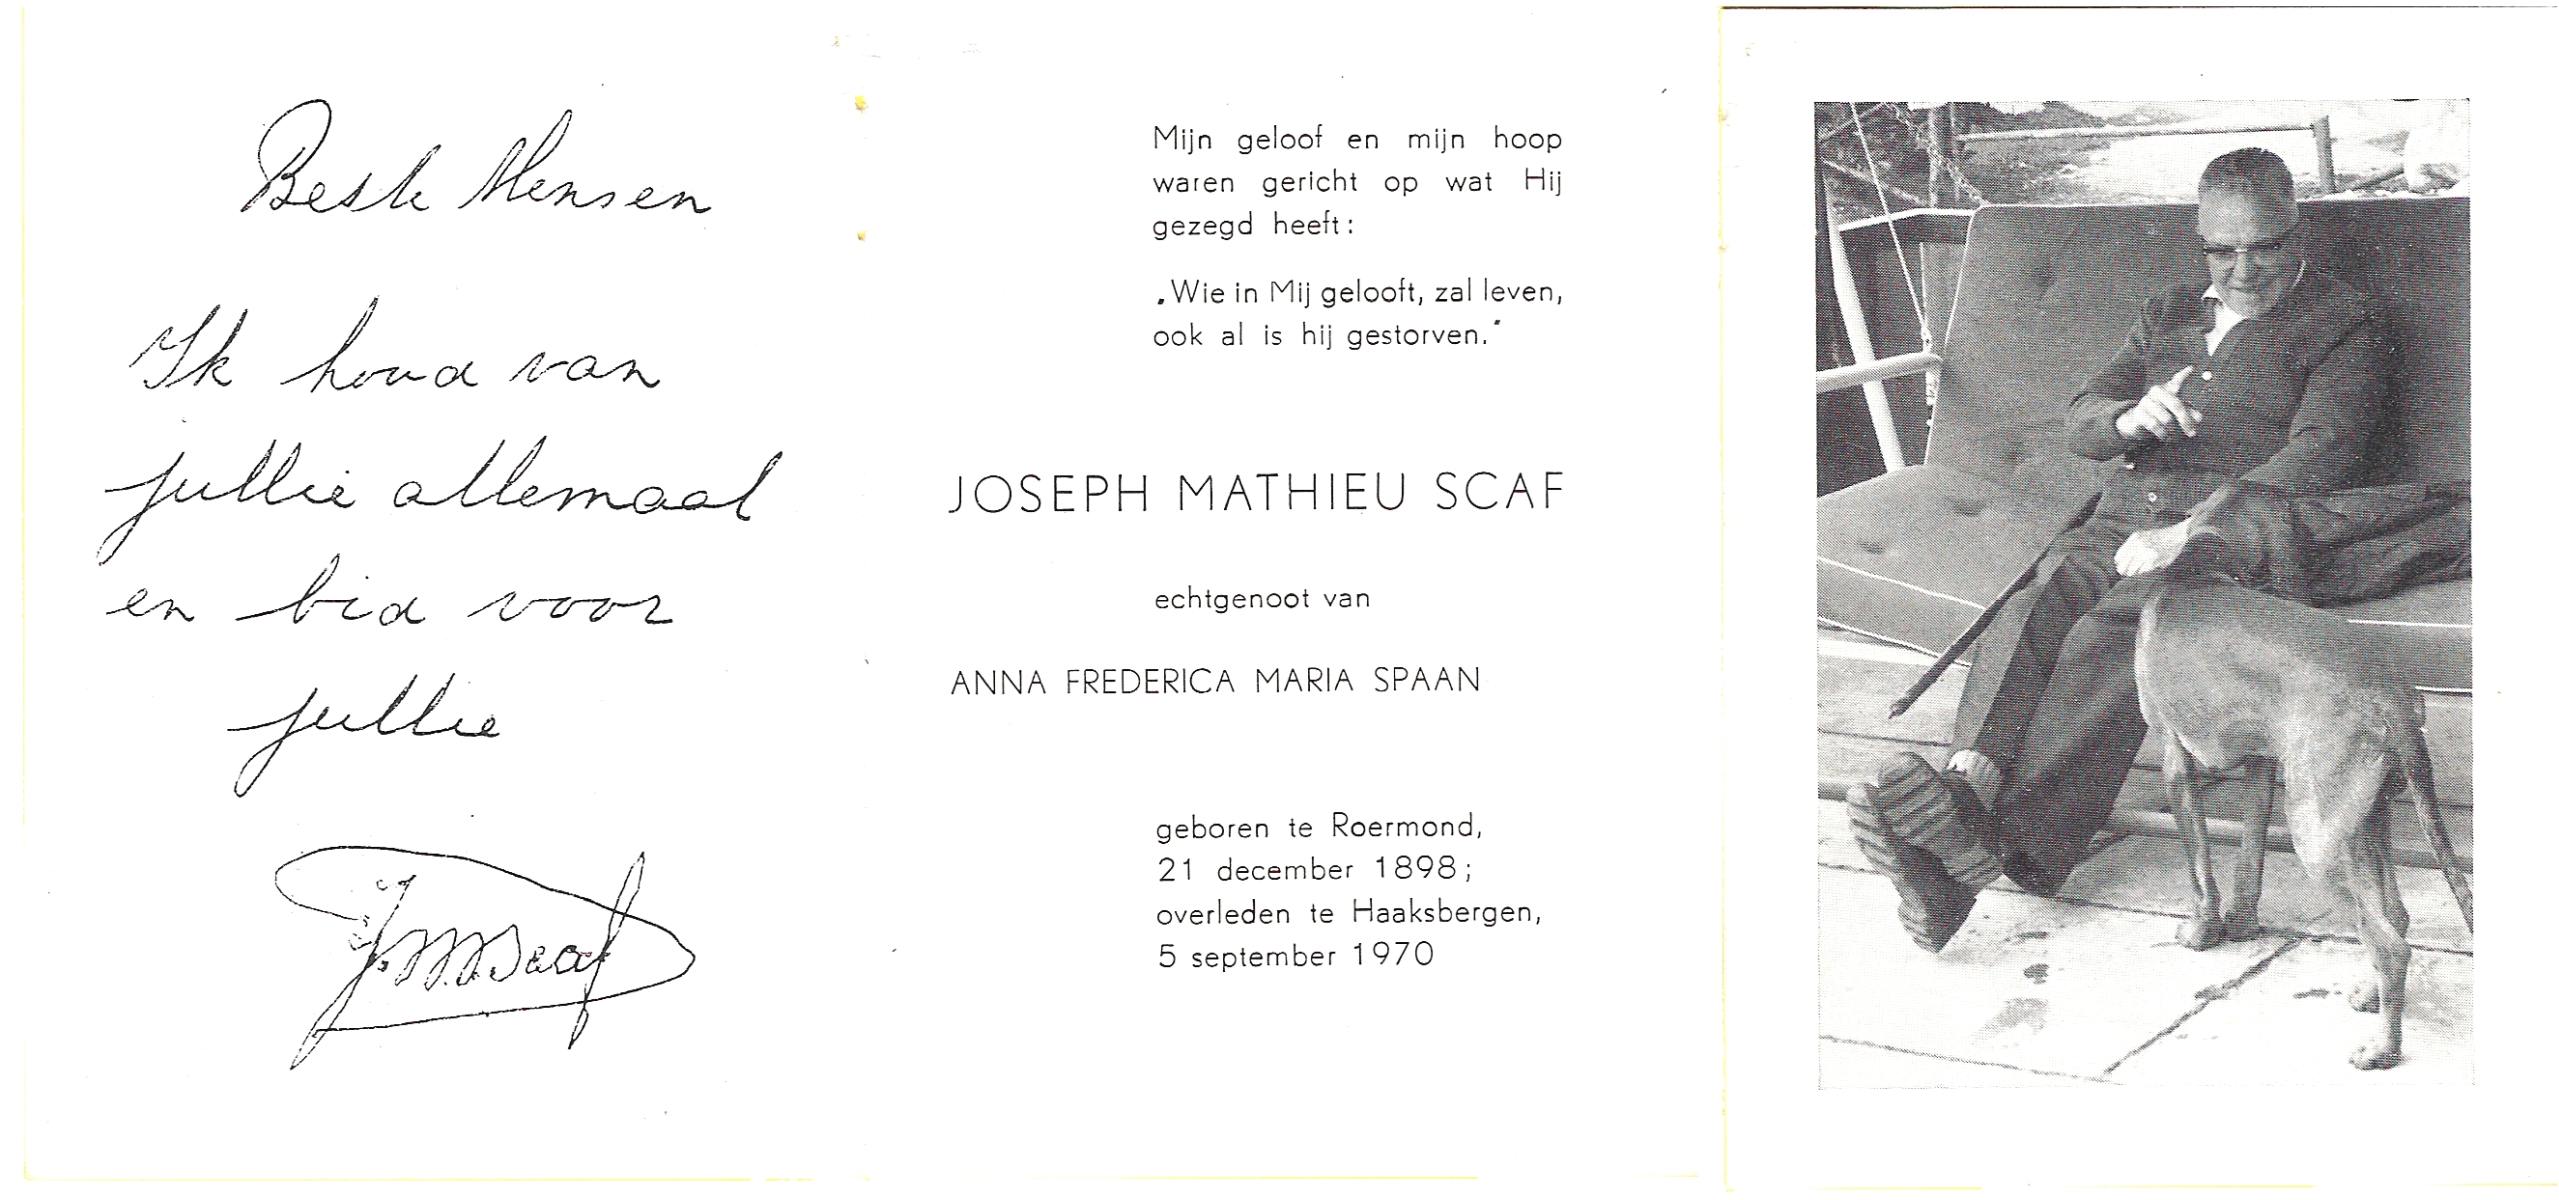 Beste Mensen
Ik houd van
jullie allemaal
en bid voor
jullie
J.M.Scaf
Mijn geloof en mijn hoop
waren gericht op wat Hij
gezegd heeft:
„Wie in Mij gelooft, zal leven,
ook al is hij gestorven.”
JOSEPH MATHIEU SCAF
echtgenoot van
ANNA FREDERICA MARIA SPAAN
geboren te Roermond,
21 december 1898;
overleden te Haaksbergen,
5 september 1970